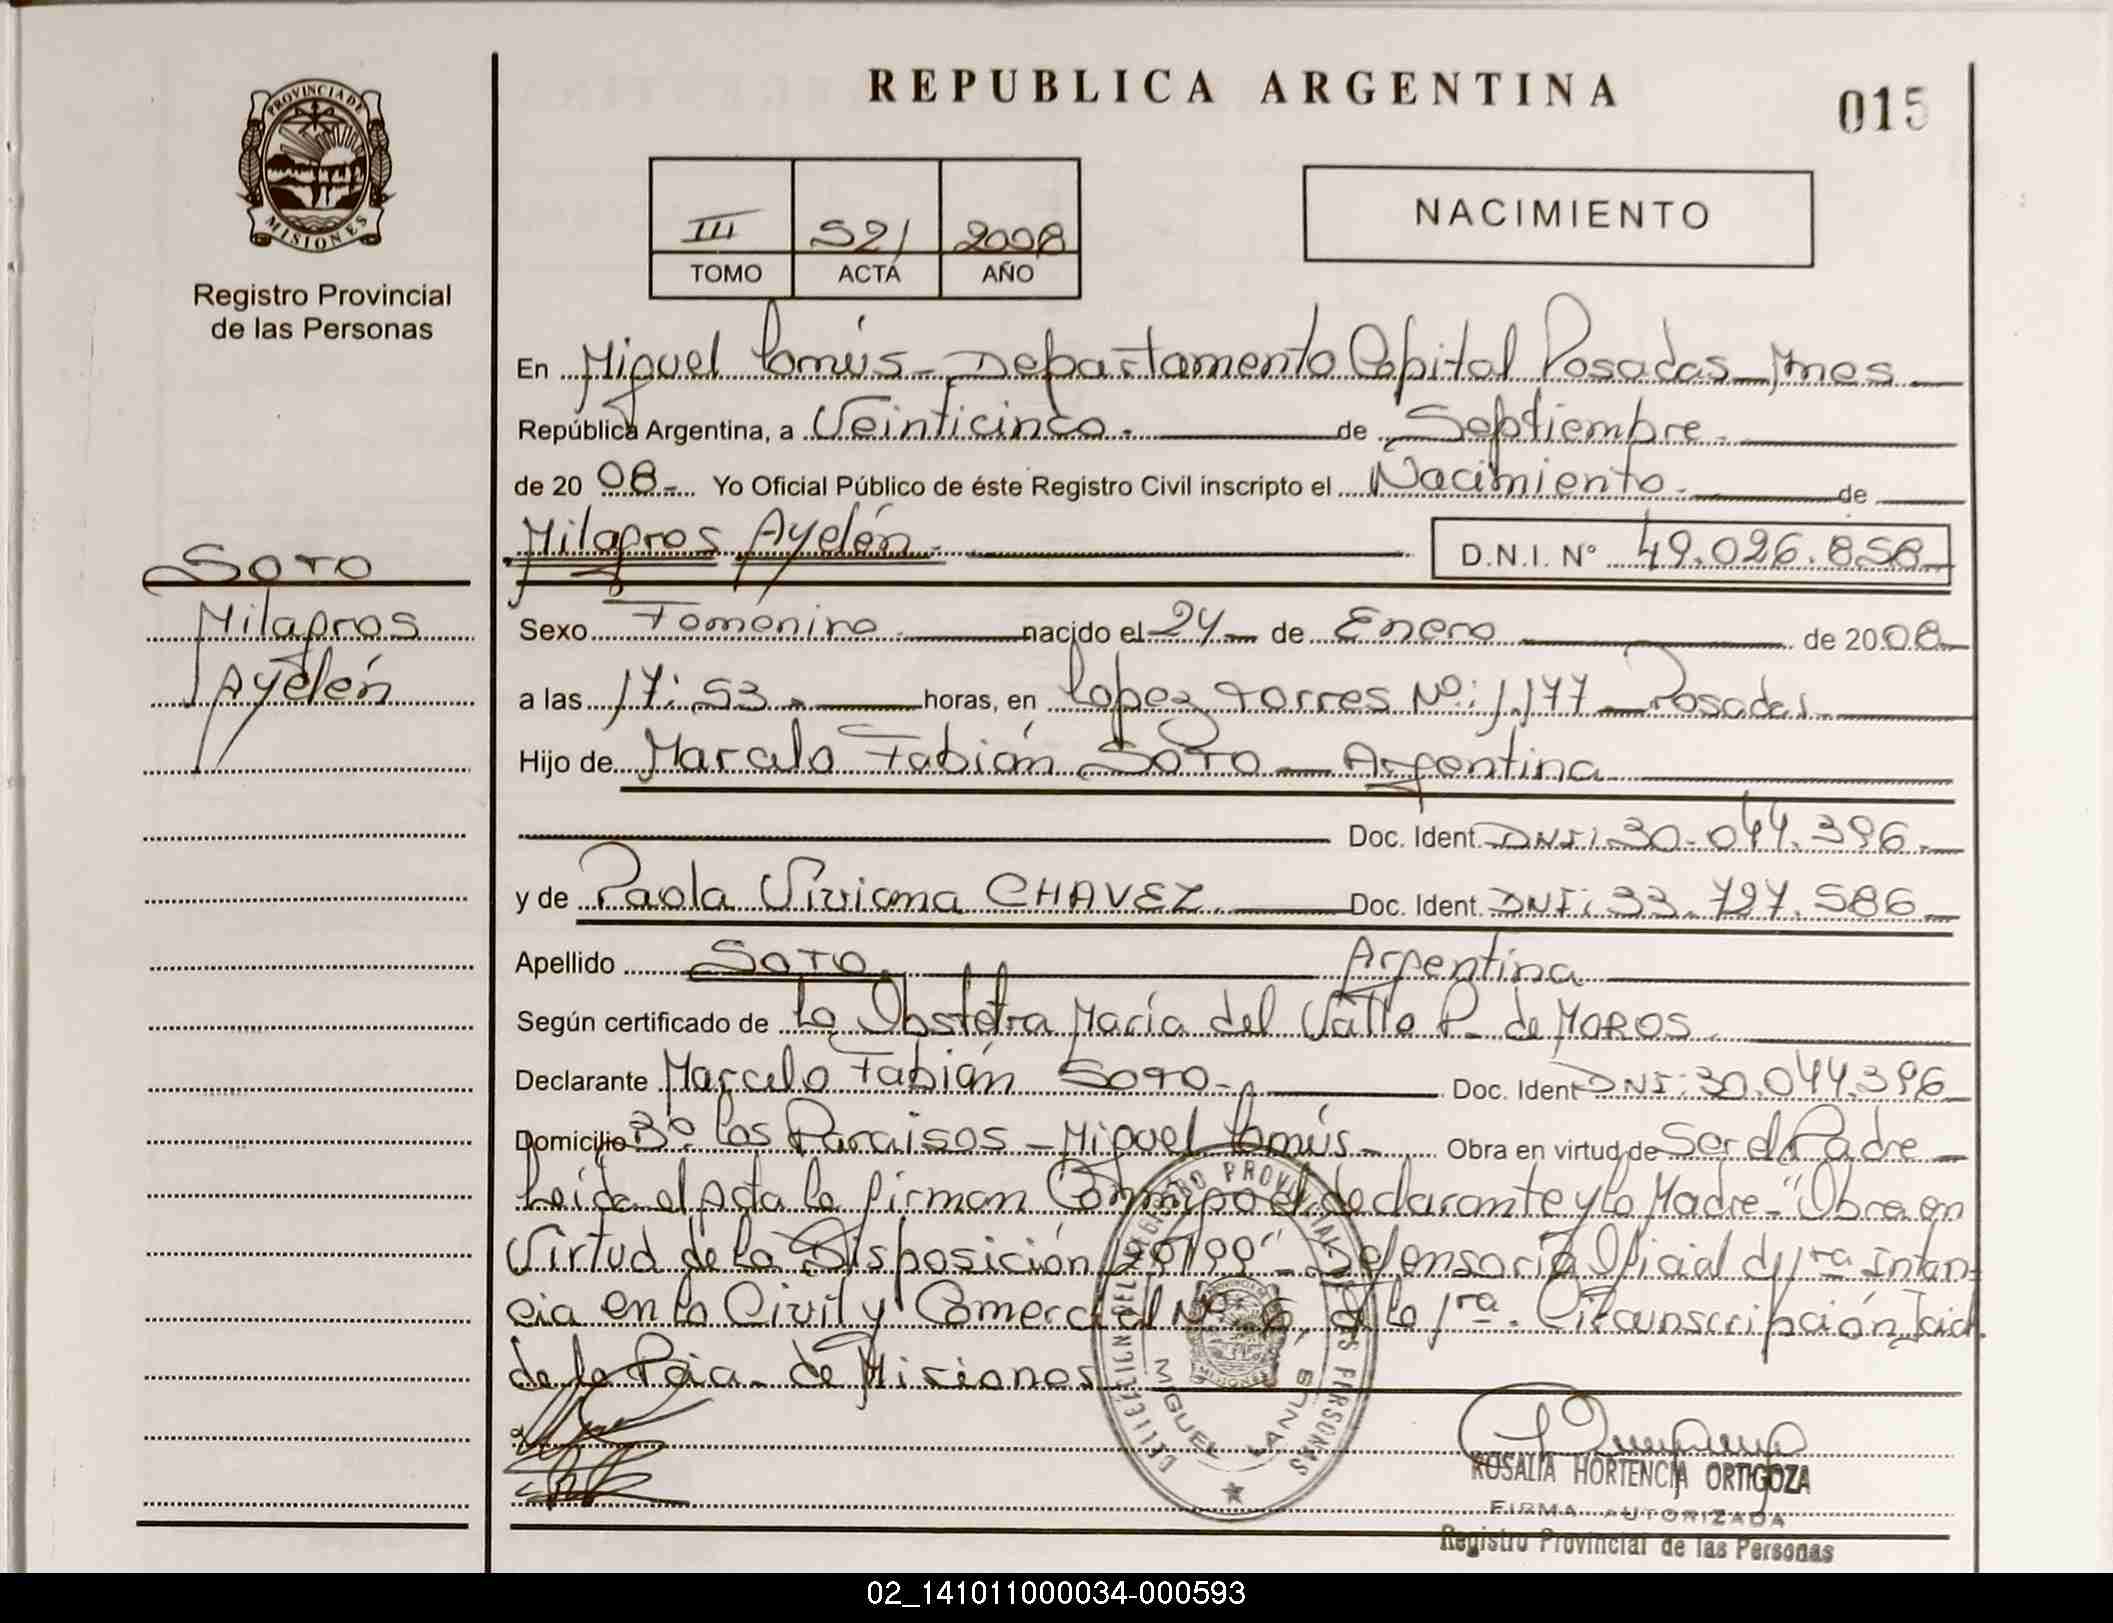 REPUBLICA ARGENTINA
015
PROVINCIA DE
MISIONES
Registro Provincial
de las Personas
III 521 2008
TOMO ACTA AÑO
NACIMIENTO
En Miguel Lanús - Departamento Capital Posadas - Mnes
República Argentina, a Veinticinco.- de Septiembre.
de 20 08.- Yo Oficial Público de éste Registro Civil inscripto el Nacimiento. de
Milagros Ayelén. D.N.I. Nº 49.026.858
SOTO
Milagros
Ayelén
Sexo Femenino. nacido el 24 de Enero de 20 08
a las 17:53. horas, en Lopez Torres Nº: 1.177 - Posadas.
Hijo de Marcelo Fabián SOTO - Argentina
Doc. Ident. DNI: 30.044.396.
y de Paola Viviana CHAVEZ. Doc. Ident. DNI: 33.727.586
Apellido SOTO. Argentina
Según certificado de La Obstetra María del Valle P. de MOROS.
Declarante Marcelo Fabián SOTO. Doc. Ident DNI: 30.044.396
Domicilio Bº Los Paraisos - Miguel Lanús. Obra en virtud de Ser el Padre
Leida el Acta la firman Conmigo el declarante y la Madre - "Obra en
Virtud de la Disposición" Defensoría Oficial de 1ra Intan-
cia en lo Civil y Comercial Nº 6, de la 1ra. Circunscripción Jud.
de la Pcia. de Misiones
DELEGACION DEL REGISTRO PROVINCIAL DE LAS PERSONAS
MIGUEL LANUS
ROSALIA HORTENCIA ORTIGOZA
FIRMA AUTORIZADA
Registro Provincial de las Personas
02_141011000034-000593